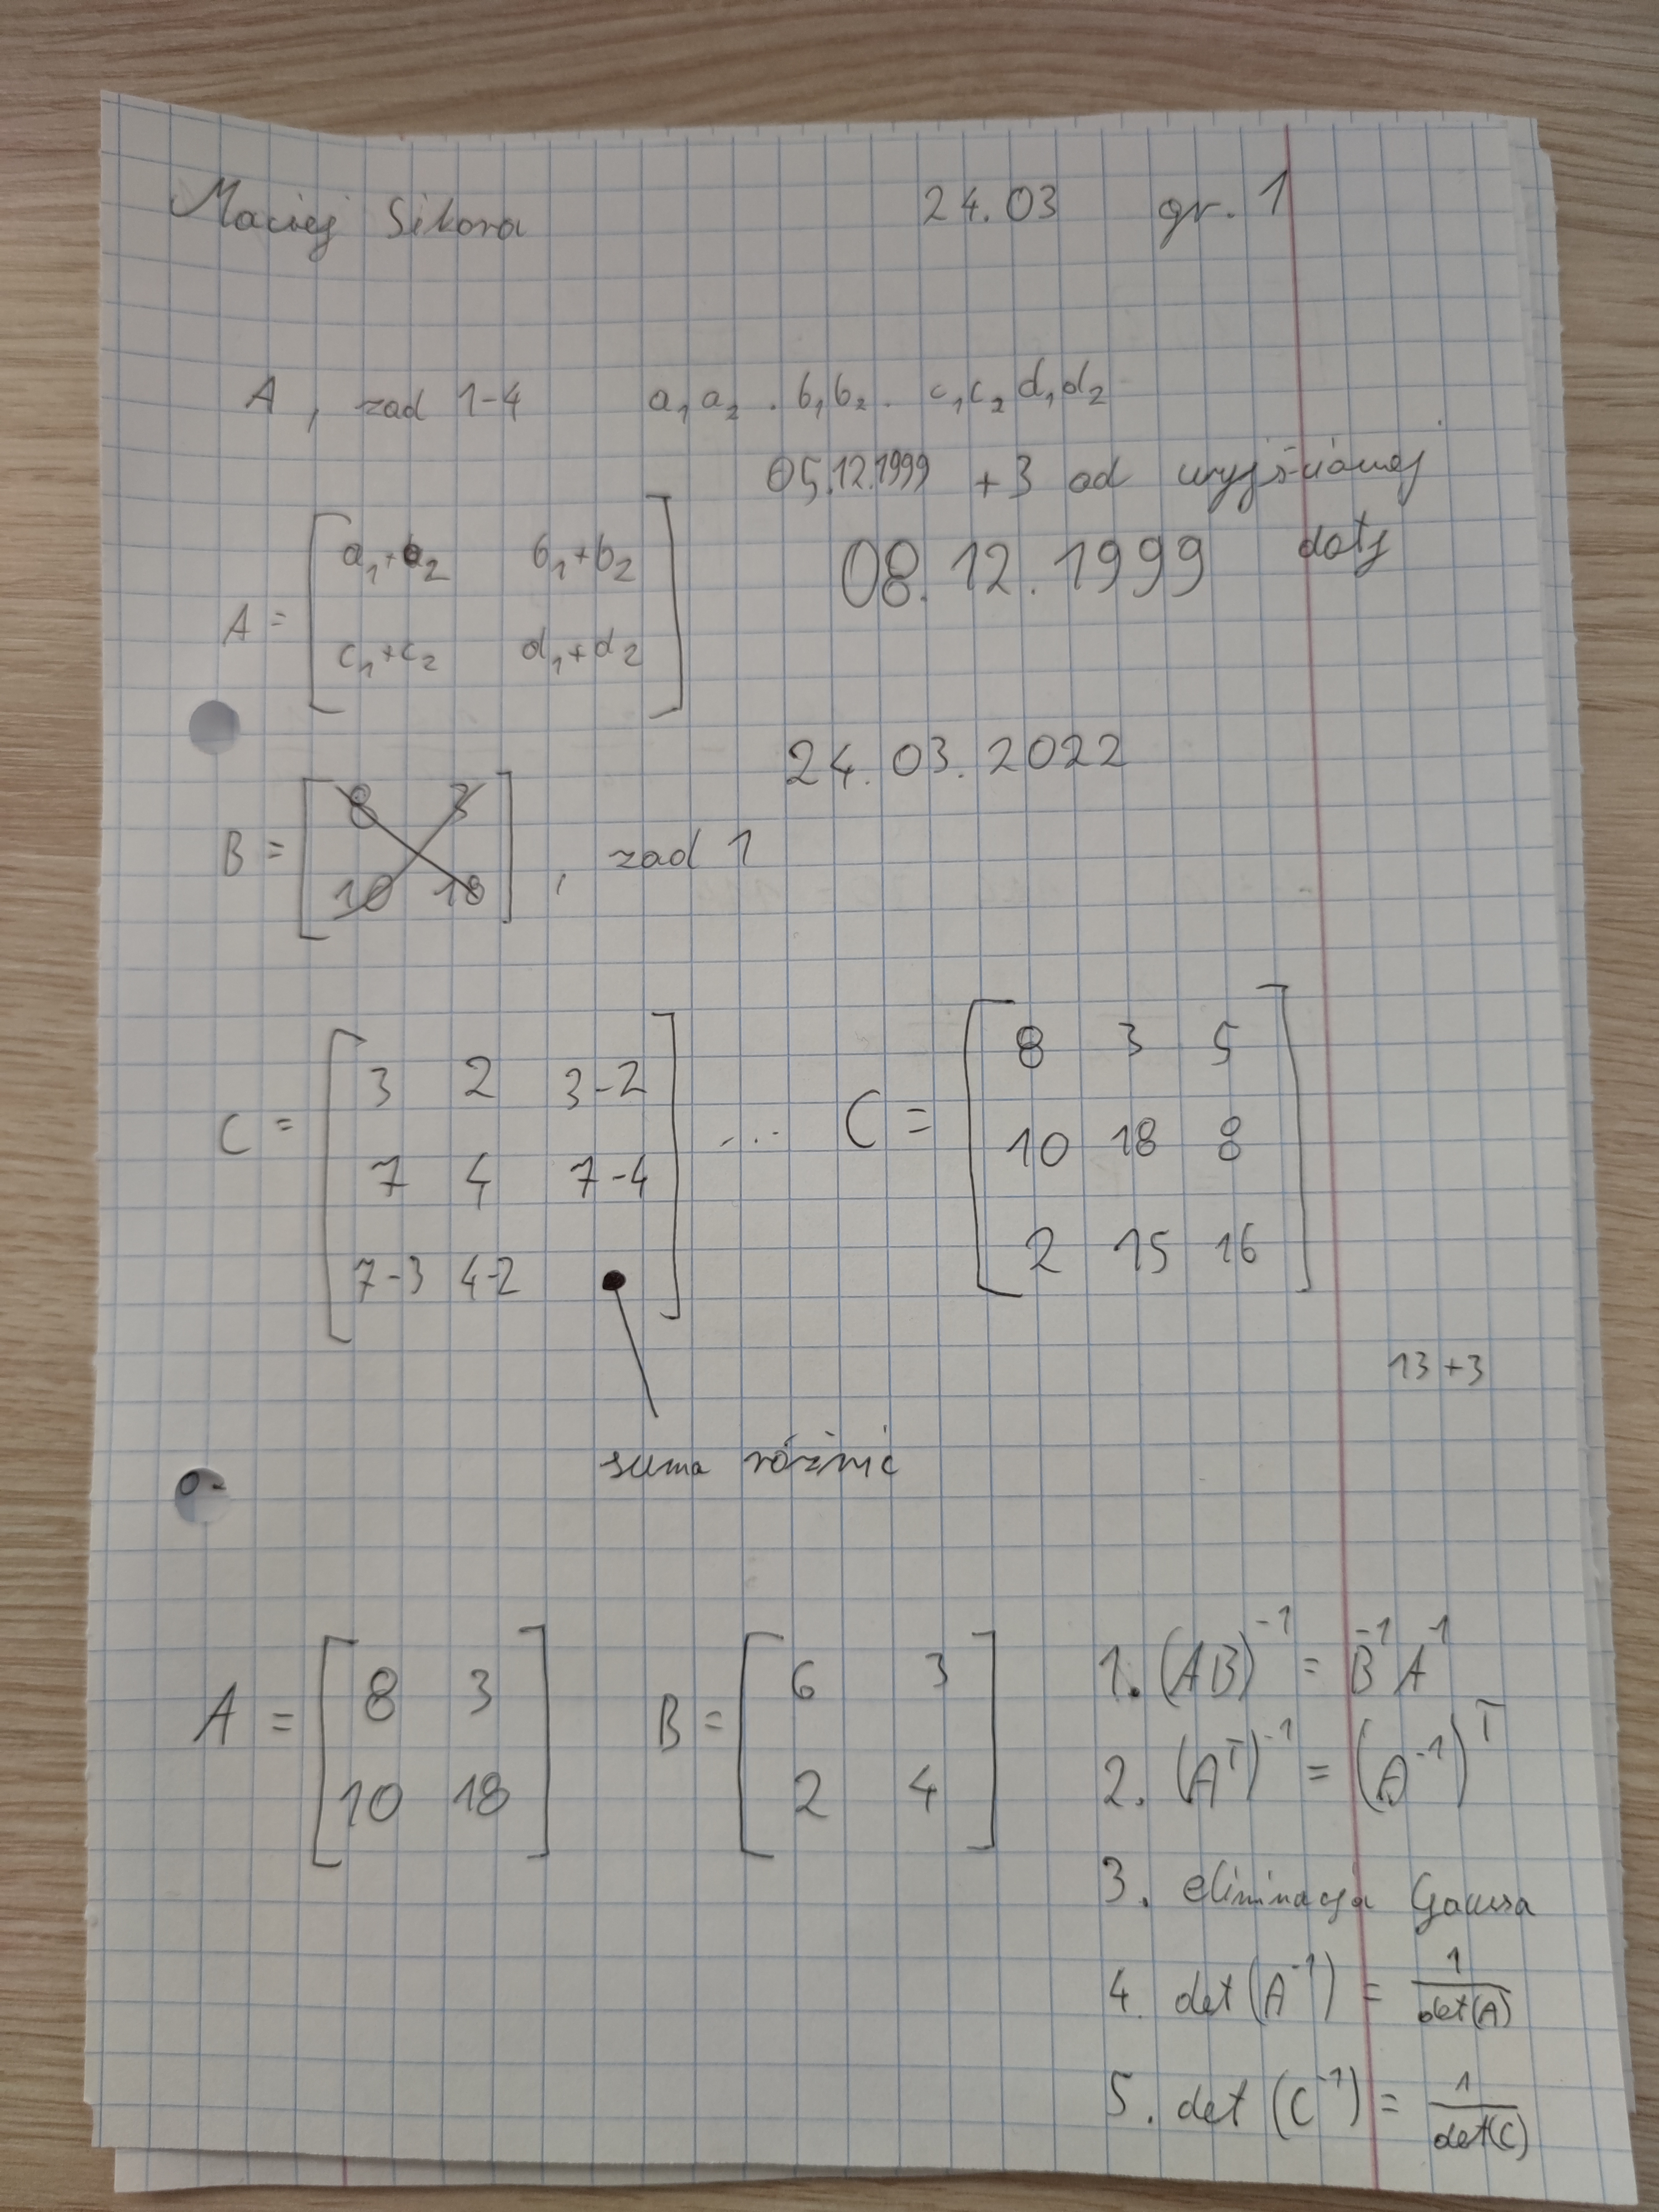 Maciej Sikora 24.03 gr. 1
A, zad 1-4 a₁a₂ . b₁b₂ . c₁c₂d₁d₂
05.12.1999 +3 od wyjściowej
daty
08.12.1999
A = [ a₁+a₂ b₁+b₂
c₁+c₂ d₁+d₂ ]
24.03.2022
B = [ 8 3
10 18 ] , zad 1
C = [ 3 2 3-2
7 4 7-4
7-3 4-2 • ]
... C = [ 8 3 5
10 18 8
2 15 16 ]
13+3
suma różnic
A = [ 8 3
10 18 ]
B = [ 6 3
2 4 ]
1. (AB)⁻¹ = B⁻¹A⁻¹
2. (Aᵀ)⁻¹ = (A⁻¹)ᵀ
3. eliminacja Gaussa
4. det(A⁻¹) = 1/det(A)
5. det(C⁻¹) = 1/det(C)